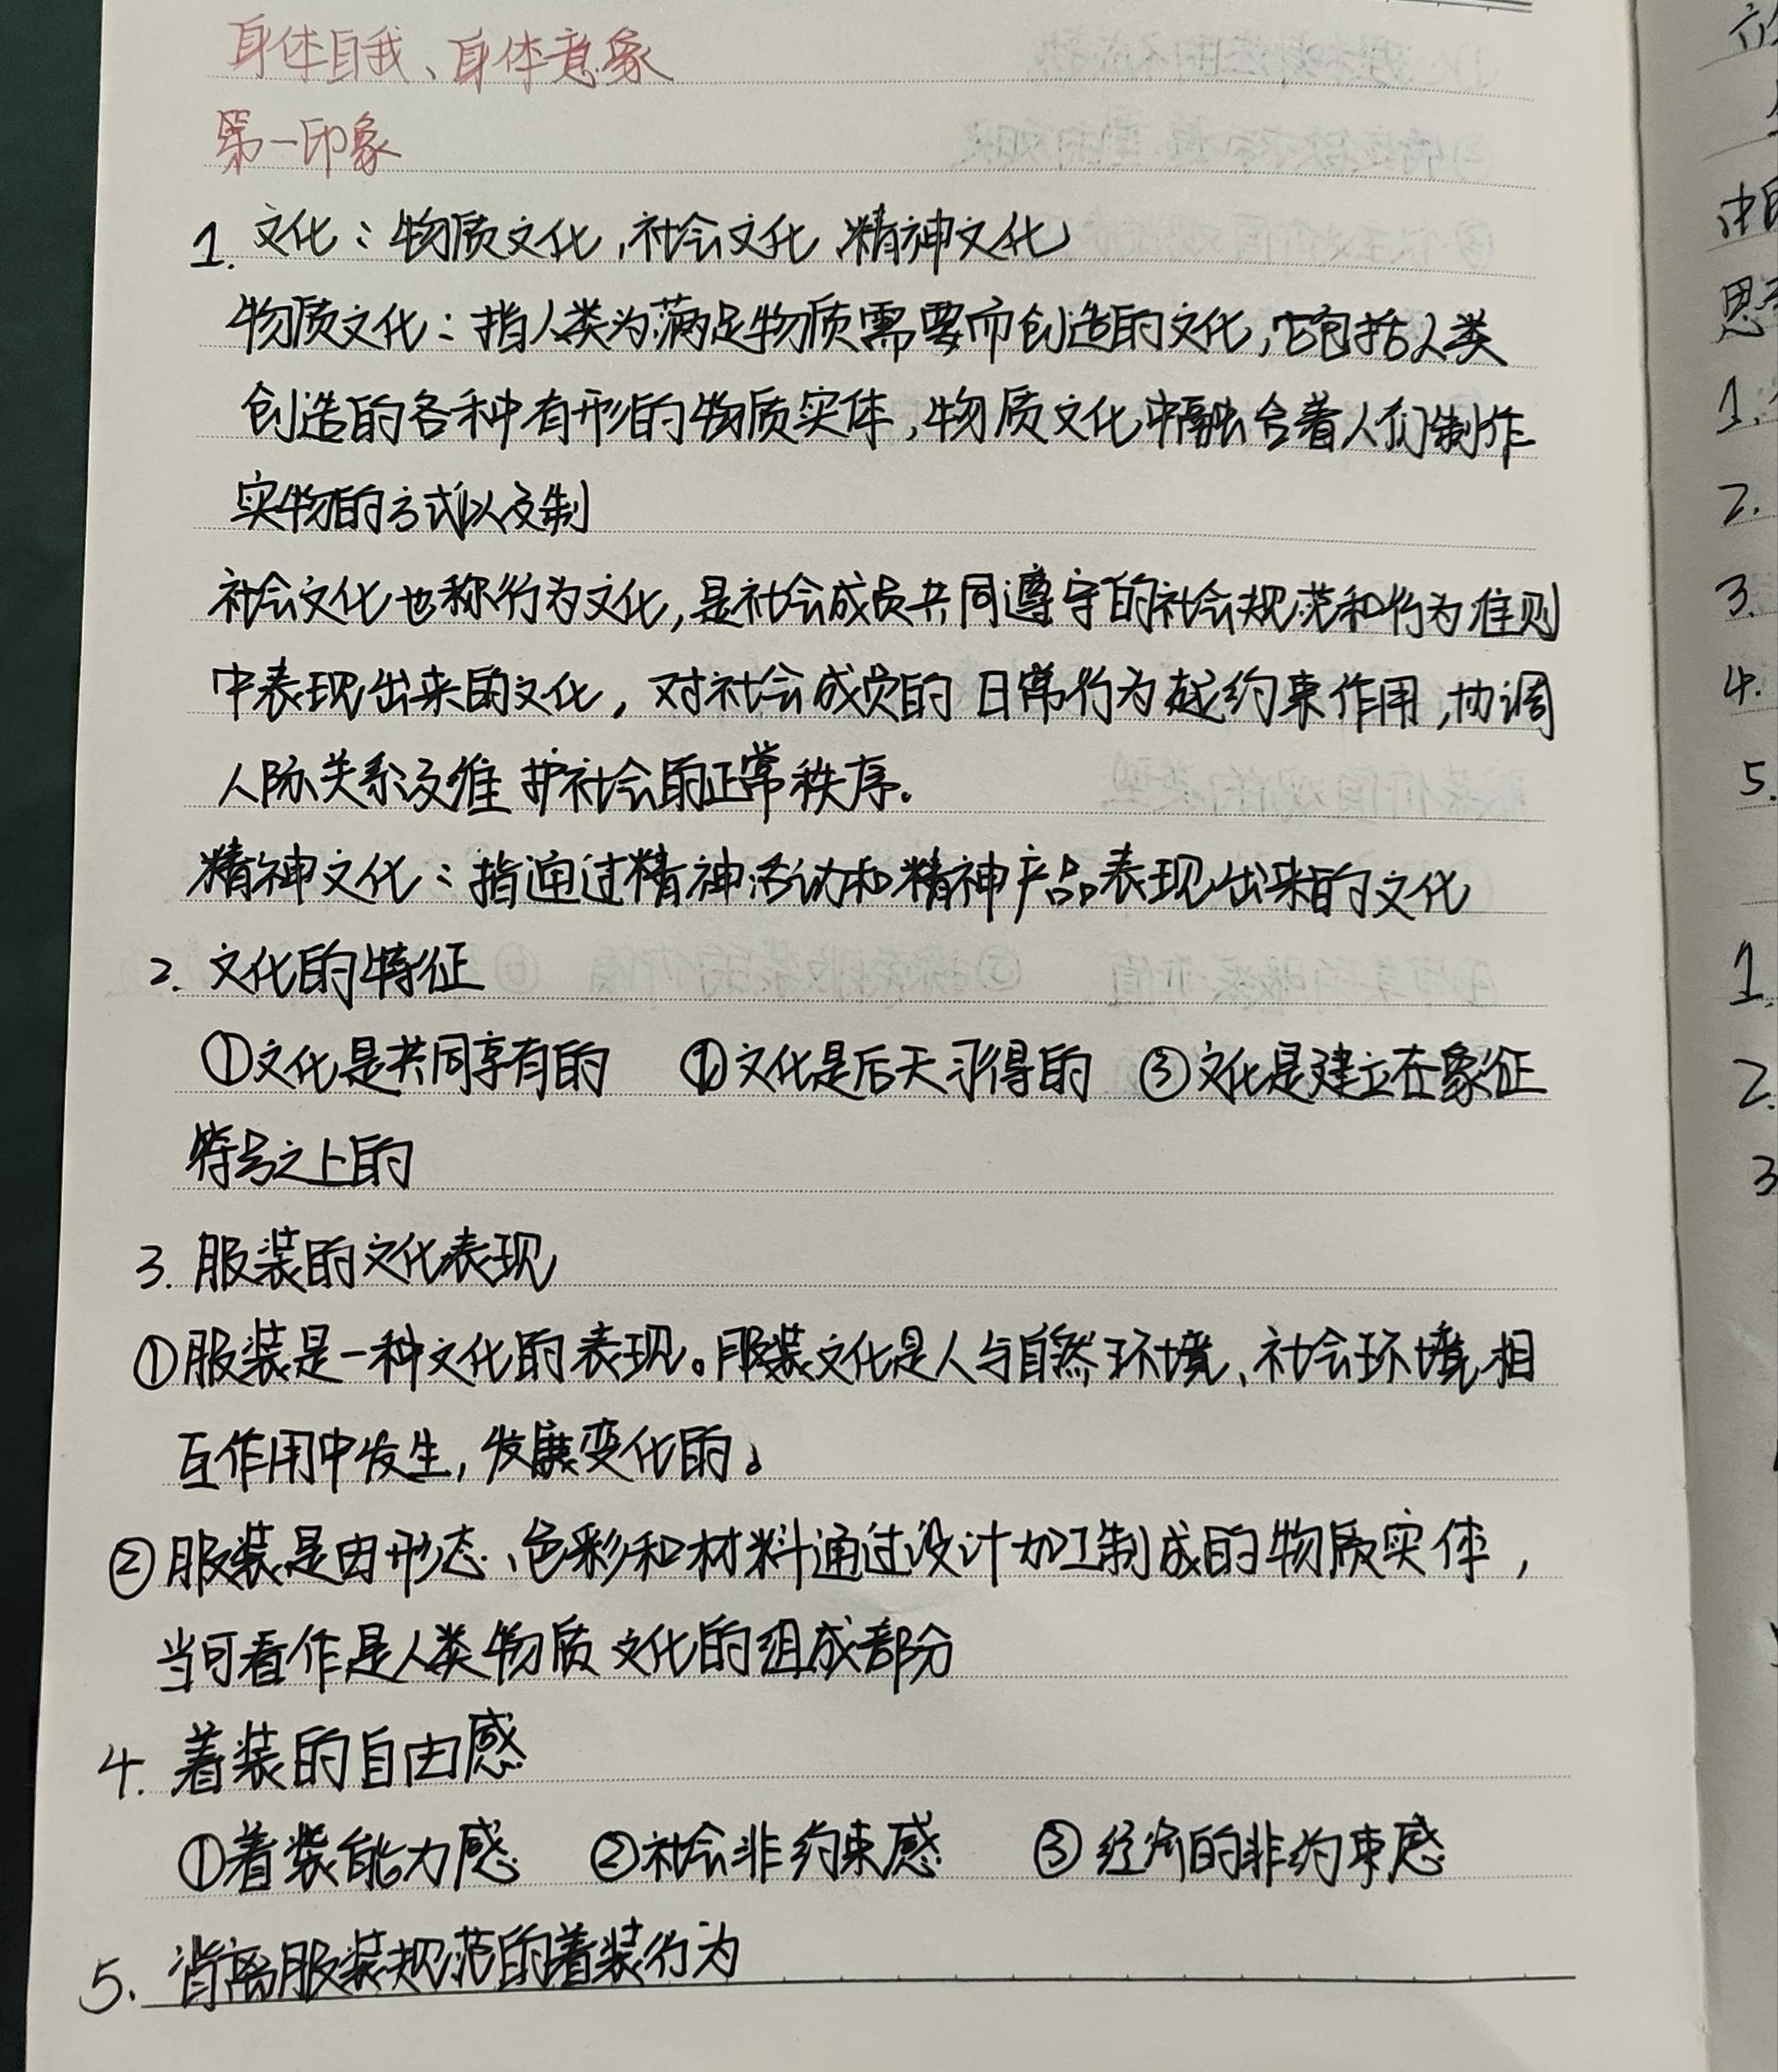 身体自我、身体意象
第一印象
1. 文化：物质文化,社会文化,精神文化
物质文化：指人类为满足物质需要而创造的文化,它包括人类
创造的各种有形的物质实体,物质文化中融合着人们制作
实物的方式以及制
社会文化也称行为文化,是社会成员共同遵守的社会规范和行为准则
中表现出来的文化，对社会成员的日常行为起约束作用,协调
人际关系及维护社会的正常秩序。
精神文化：指通过精神活动和精神产品表现出来的文化
2. 文化的特征
①文化是共同享有的 ②文化是后天习得的 ③文化是建立在象征
符号之上的
3. 服装的文化表现
①服装是一种文化的表现。服装文化是人与自然环境、社会环境相
互作用中发生,发展变化的。
②服装是由形态、色彩和材料通过设计加工制成的物质实体，
当可看作是人类物质文化的组成部分
4. 着装的自由感
①着装能力感 ②社会非约束感 ③经济的非约束感
5. 背离服装规范的着装行为
中
思
1.
2.
3.
4.
5.
1.
2.
3